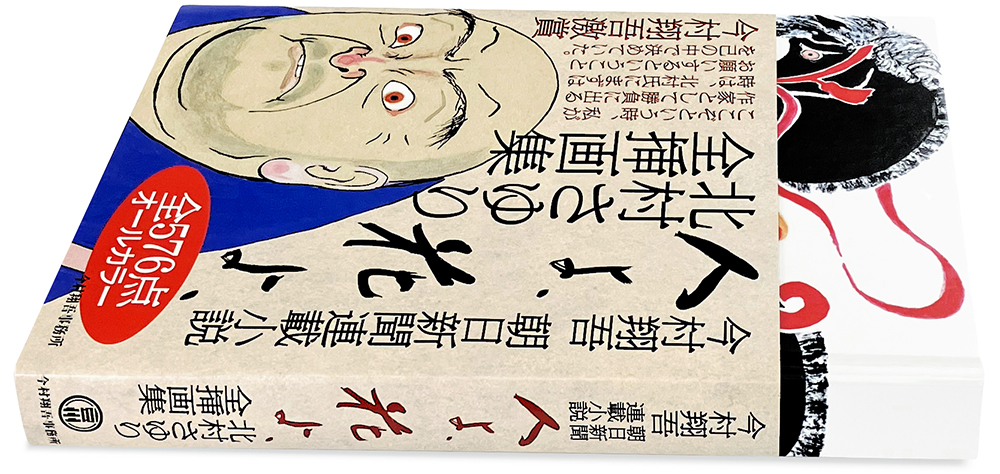 今村翔吾 朝日新聞連載小説
人よ、花よ、
北村さゆり
全挿画集
ここぞという時、私が
作家として勝負に出る
時は、北村氏にまずは
お願いするということ
を己の中で決めていた。
今村翔吾激賞
全576点
オールカラー
今村翔吾事務所
今村翔吾
朝日新聞
連載小説
人よ、花よ、
北村さゆり
全挿画集
今村翔吾事務所